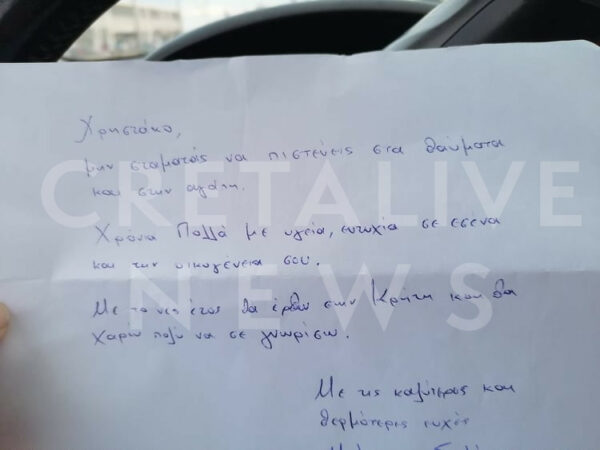 Χρηστάκο,
μην σταματάς να πιστεύεις στα θαύματα
και στην αγάπη.
Χρόνια Πολλά με υγεία, ευτυχία σε εσενα
και την οικογένεια σου.
Με το νέο έτος θα έρθω στην Κρήτη και θα
χαρώ πολύ να σε γνωρίσω.
Με τις καλύτερες και
θερμότερες ευχές
CRETALIVE
NEWS